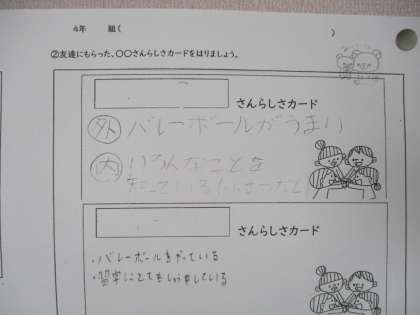 4年　組(　　　)
②友達にもらった、〇〇さんらしさカードをはりましょう。
さんらしさカード
外 バレーボールがうまい
内 いろんなことを
知っている
さんらしさカード
・バレーボールをやっている
・習字にとても している